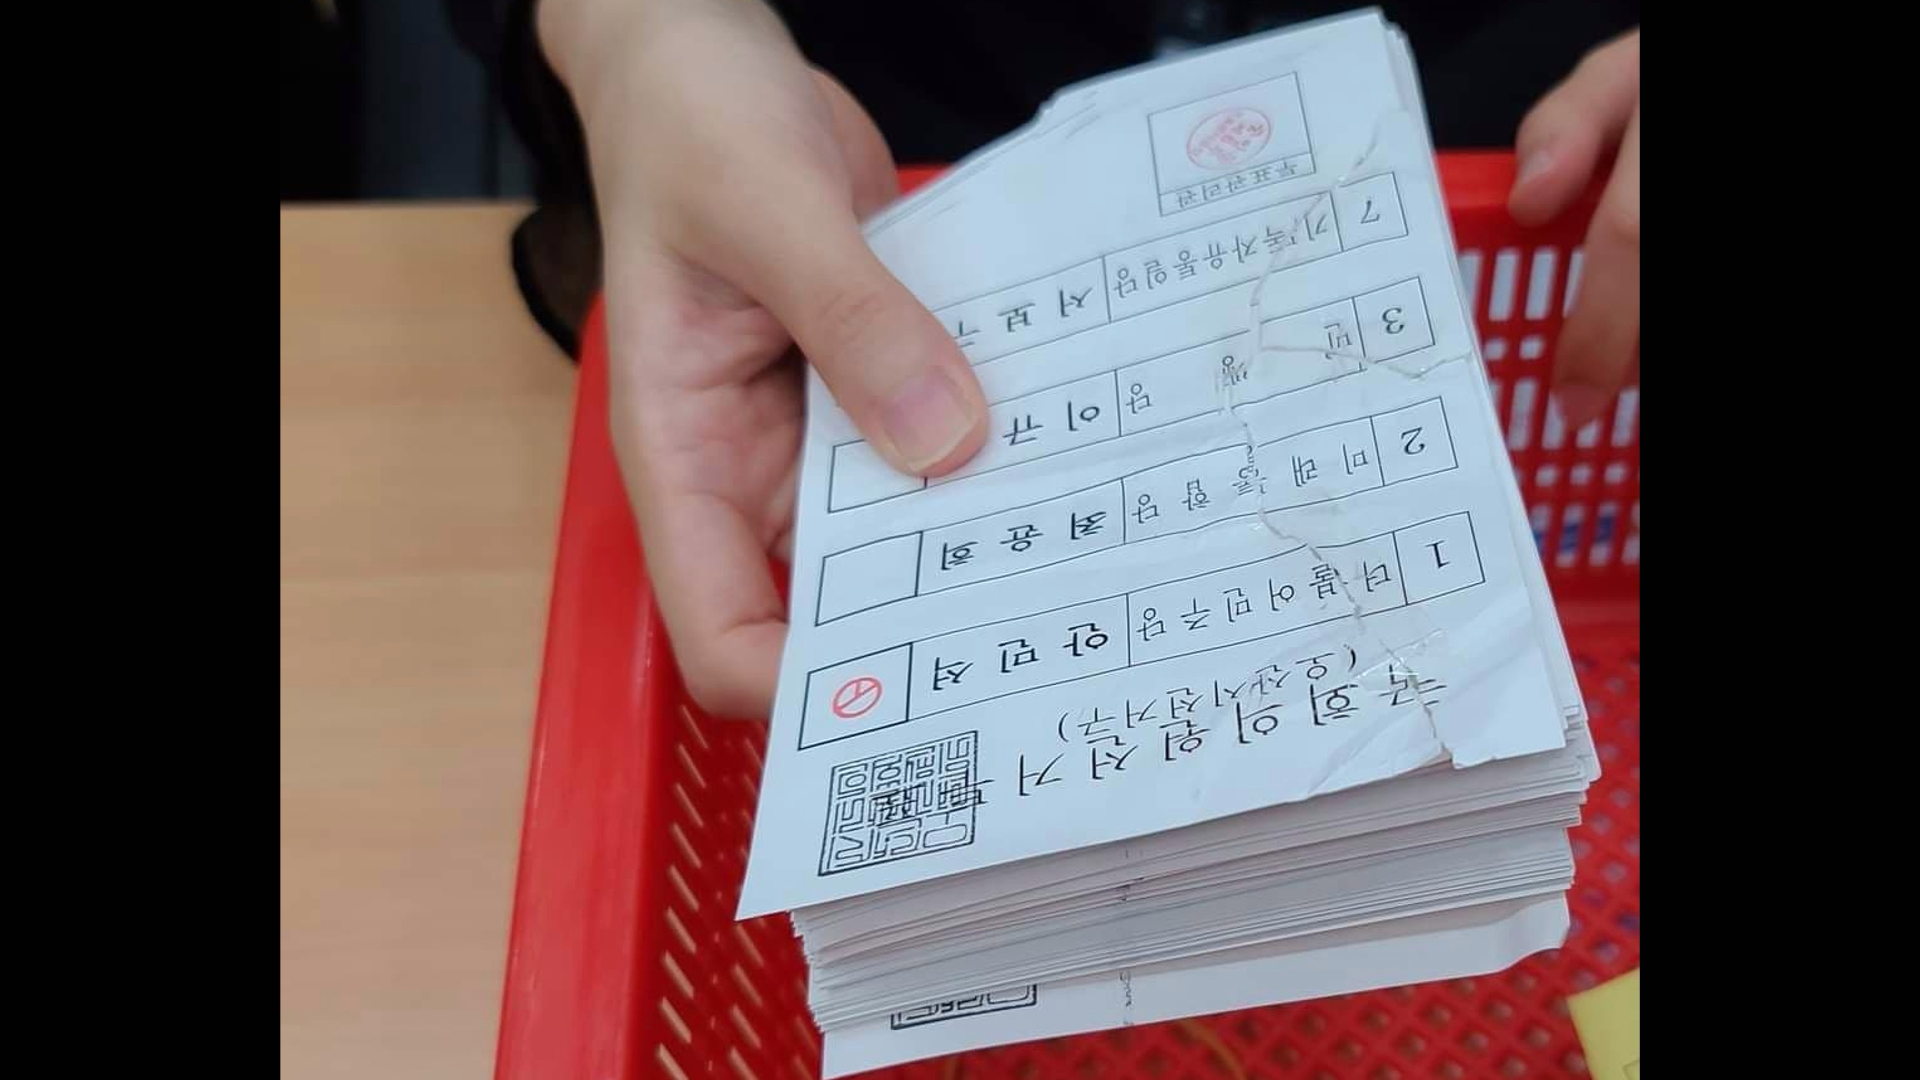 국회의원선거투표
(오산시선거구)
1 더불어민주당 안민석
2 미래통합당 최윤희
3 민생당 이규
7 기독자유통일당 서보
투표관리관